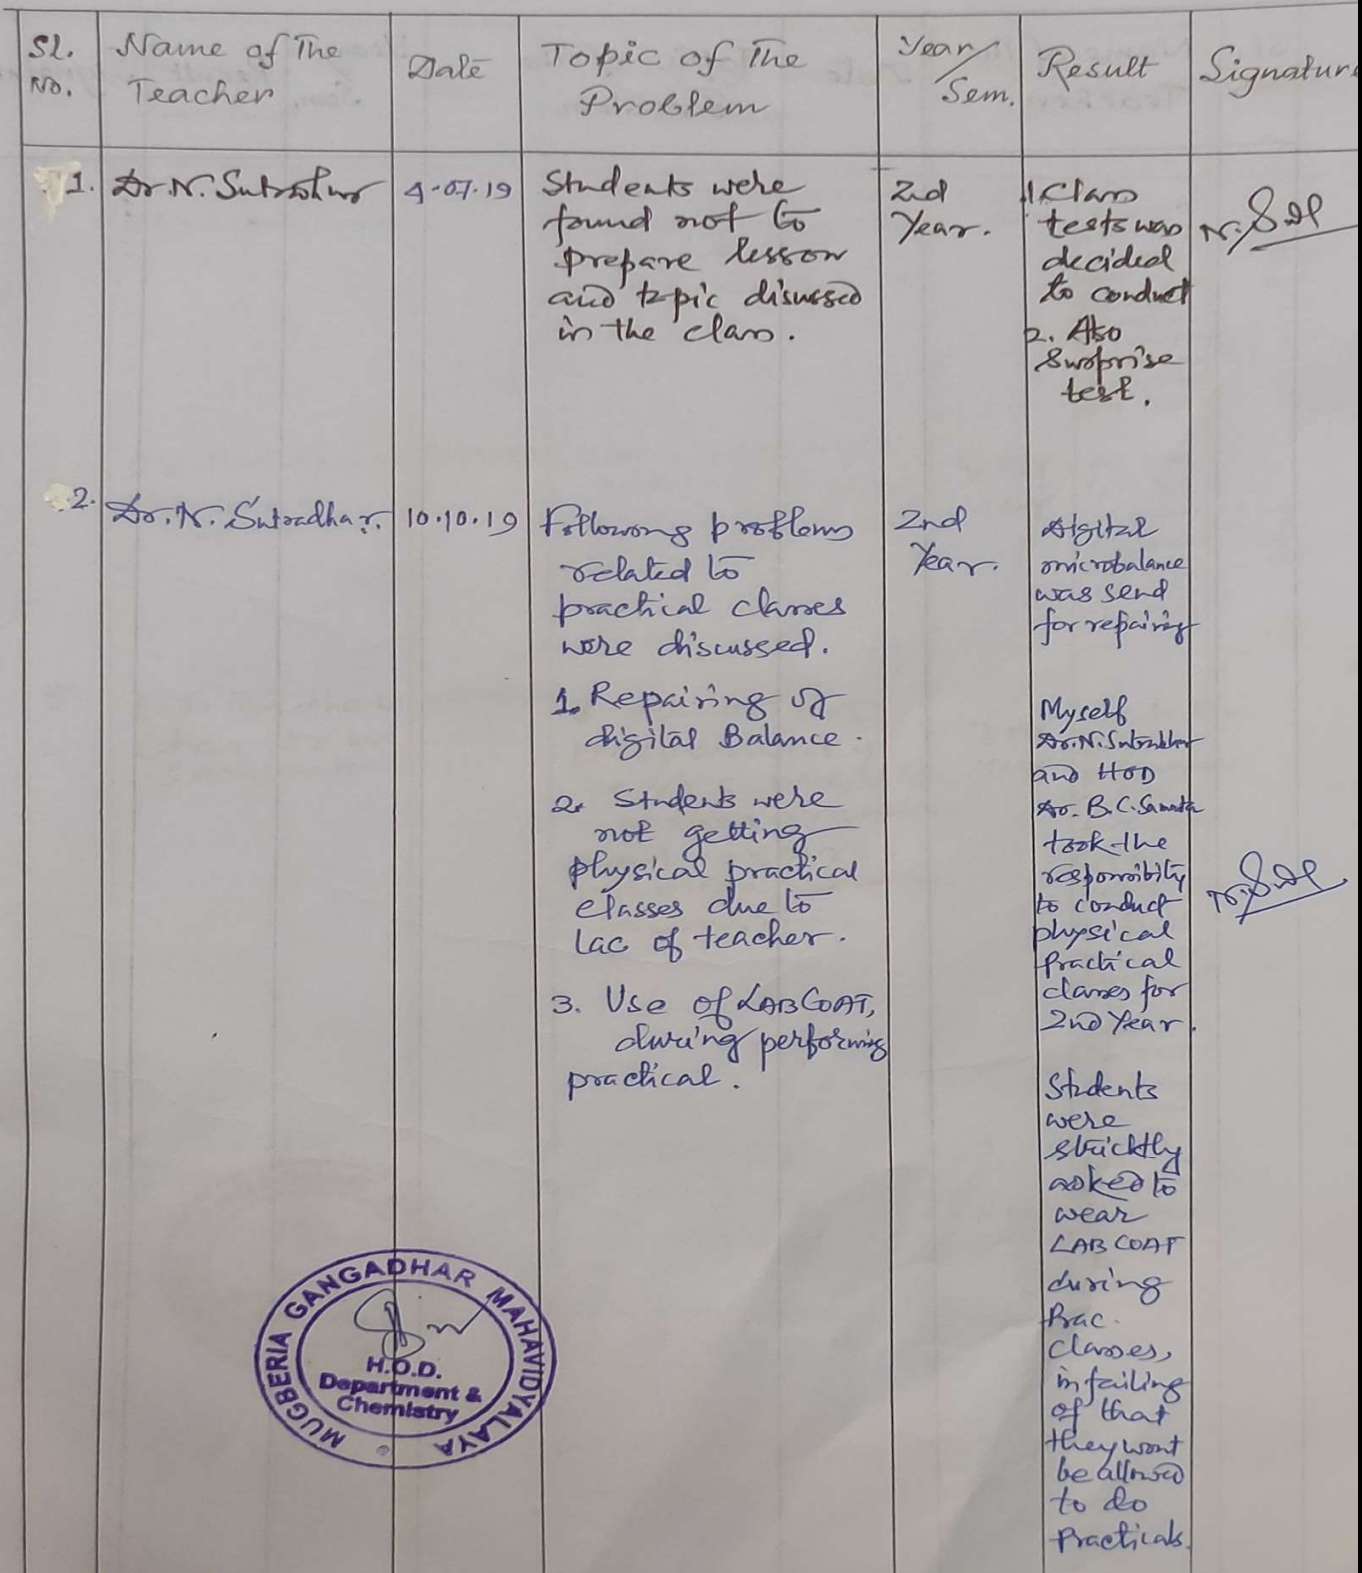 Sl. No.
Name of The Teacher
Date
Topic of The Problem
Year/Sem.
Result
Signature
1.
Dr. N. Sutradhar
4-07-19
Students were
found not to
prepare lesson
and topic disussed
in the class.
2nd
Year.
1. Class
tests was
decided
to conduct
2. Also
Surprise
test.
N. Sdr
2.
Dr. N. Sutradhar.
10.10.19
Following problems
related to
practical classes
were discussed.
1. Repairing of
digital Balance.
2. Students were
not getting
physical practical
classes due to
Lac of teacher.
3. Use of LAB COAT,
during performing
practical.
2nd
Year.
Digital
microbalance
was send
for repairing
Myself
Dr. N. Sutradhar
and HOD
Dr. B.C. Samanta
took the
responsibity
to conduct
physical
practical
classes for
2nd Year.
Students
were
stricktly
asked to
wear
LAB COAT
during
Prac.
classes,
in failing
of that
they wont
be allowed
to do
Practicals.
MUGBERIA GANGADHAR MAHAVIDYALAYA
H.O.D.
Department &
Chemistry